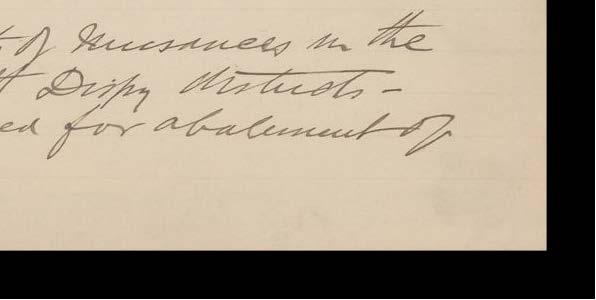 of Nuisances in the
Dispy districts -
ed for abatement of